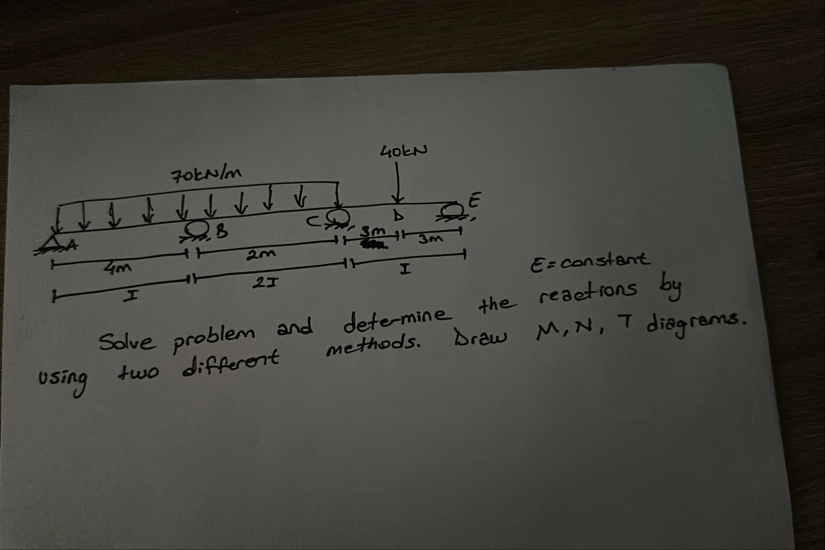 40kN
70kN/m
A B C D E
4m 2m 3m 3m
I 2I I
E=constant
Solve problem and determine the reactions by
using two different methods. Draw M, N, T diagrams.